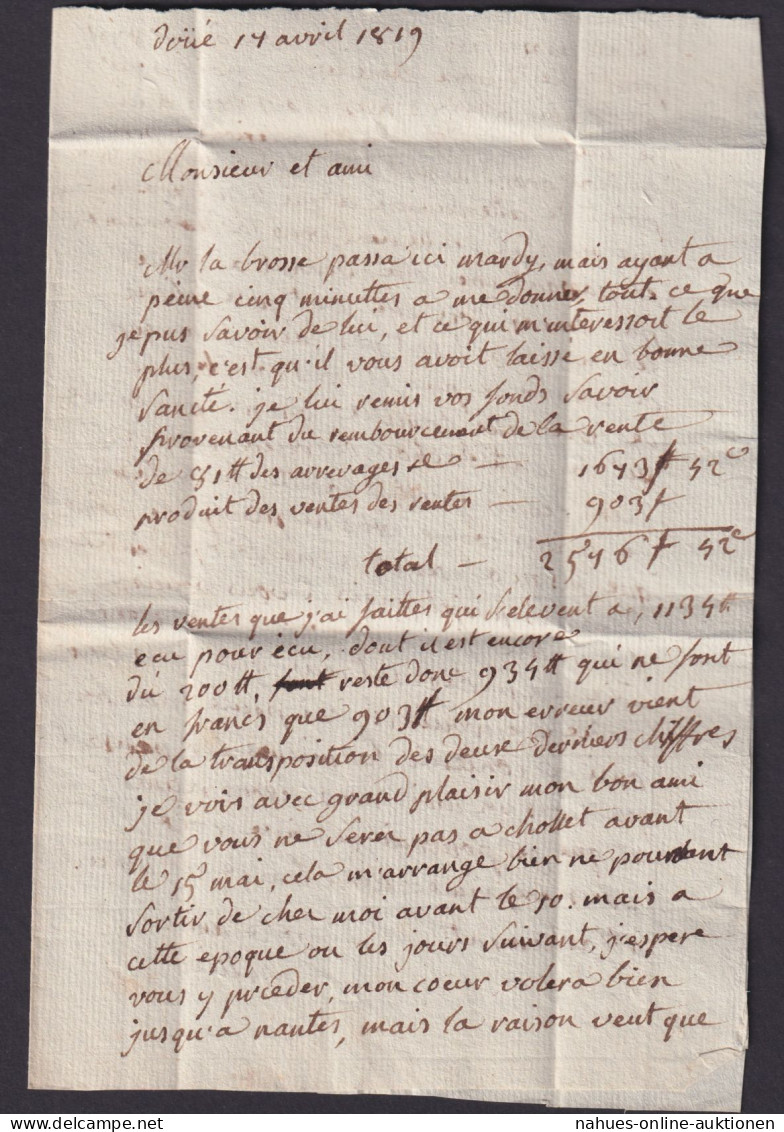 doüé 17 avril 1819
Monsieur et ami
Mr la brosse passa ici mardy, mais ayant a
peine cinq minuttes a me donner, tout ce que
je pus savoir de lui, et ce qui m'interessoit le
plus, c'est qu'il vous avoit laissé en bonne
santé. je lui remis vos fonds savoir
provenant du rembourcement de la rente
de 81tt des arrerages &c — 1643f 42c
produit des ventes des ventes — 903f
total — 2546f 42c
les ventes que j'ai faittes qui s'elevent a, 1134tt
ecu pour ecu, dont il est encore
dû 200tt, reste donc 934tt qui ne font
en francs que 903tt mon erreur vient
de la transposition des deux derniers chiffres
je vois avec grand plaisir mon bon ami
que vous ne serez pas a chollet avant
le 15 mai, cela m'arrange bien ne pouvant
sortir de chez moi avant le 10. mais a
cette epoque ou les jours suivant, j'espere
vous y préceder, mon coeur volera bien
jusqu'a nantes, mais la raison veut que
nahues-online-auktionen